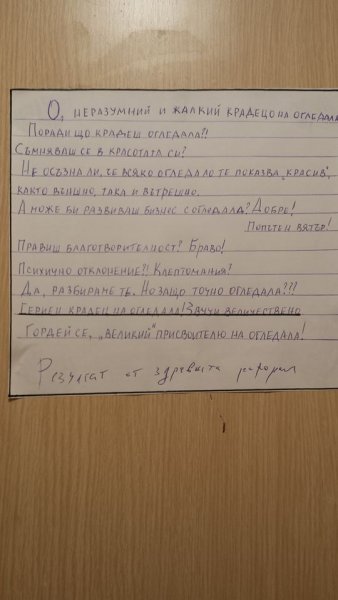 О, неразумний и жалкий крадецо на огледала
Поради що крадеш огледала?!
Съмняваш се в красотата си?
Не осъзна ли, че всяко огледало те показва „красив“,
както външно, така и вътрешно.
А може би развиваш бизнес с огледала? Добре!
Попътен вятър!
Правиш благотворителност? Браво!
Психично отклонение?! Клептомания?
Да, разбираме те. Но защо точно огледала???
Сериен крадец на огледала! Звучи величествено
Гордей се, „великий“ присвоителю на огледала!
Резултат от здравната реформа